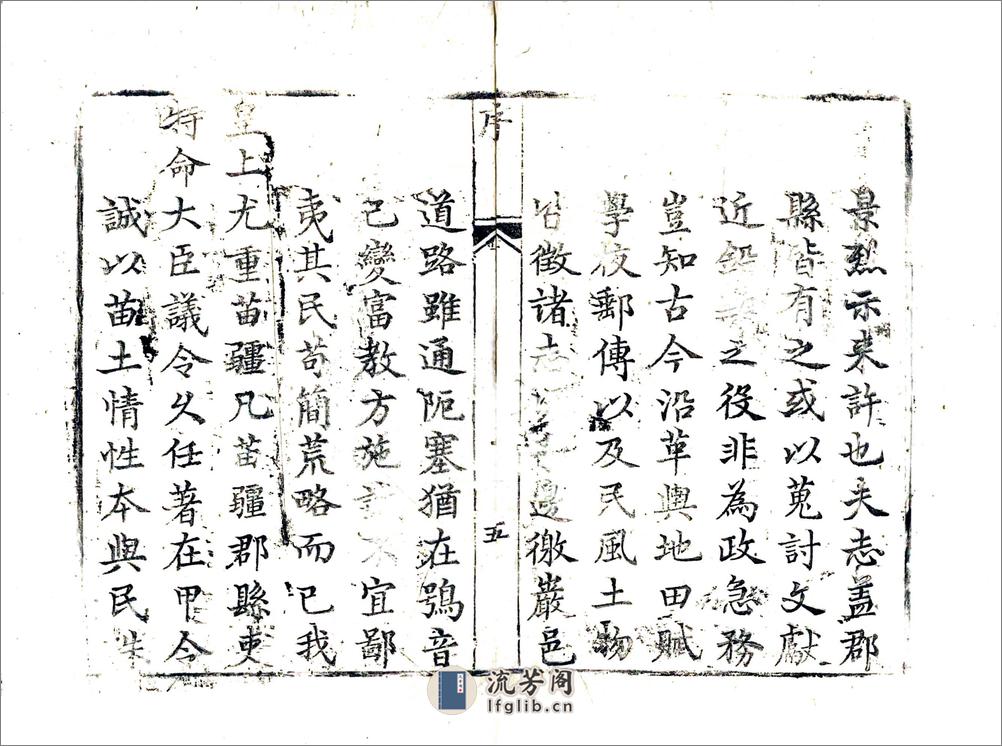 景烈示来許也夫志盖郡
縣皆有之或以蒐討文獻
近鉛之役非為政急務
豈知古今沿革輿地田賦
學校郵傳以及民風土物
皆徵諸志邊徼巖邑
序
五
道路雖通阨塞猶在鴞音
已變富教方施詎宜鄙
夷其民苟簡荒略而已我
皇上尤重苗疆凡苗疆郡縣吏
特命大臣議令久任著在甲令
誠以苗土情性本與民
流芳阁
lfglib.cn